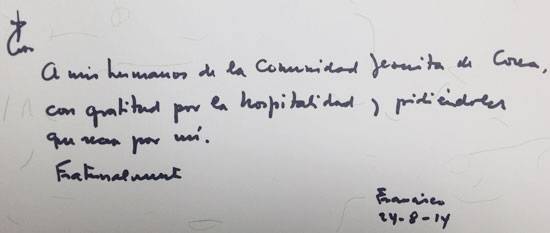 A mis hermanos de la Comunidad Jesuita de Corea,
con gratitud por la hospitalidad y pidiéndoles
que recen por mí.
Fraternalmente
Francisco
24-8-14